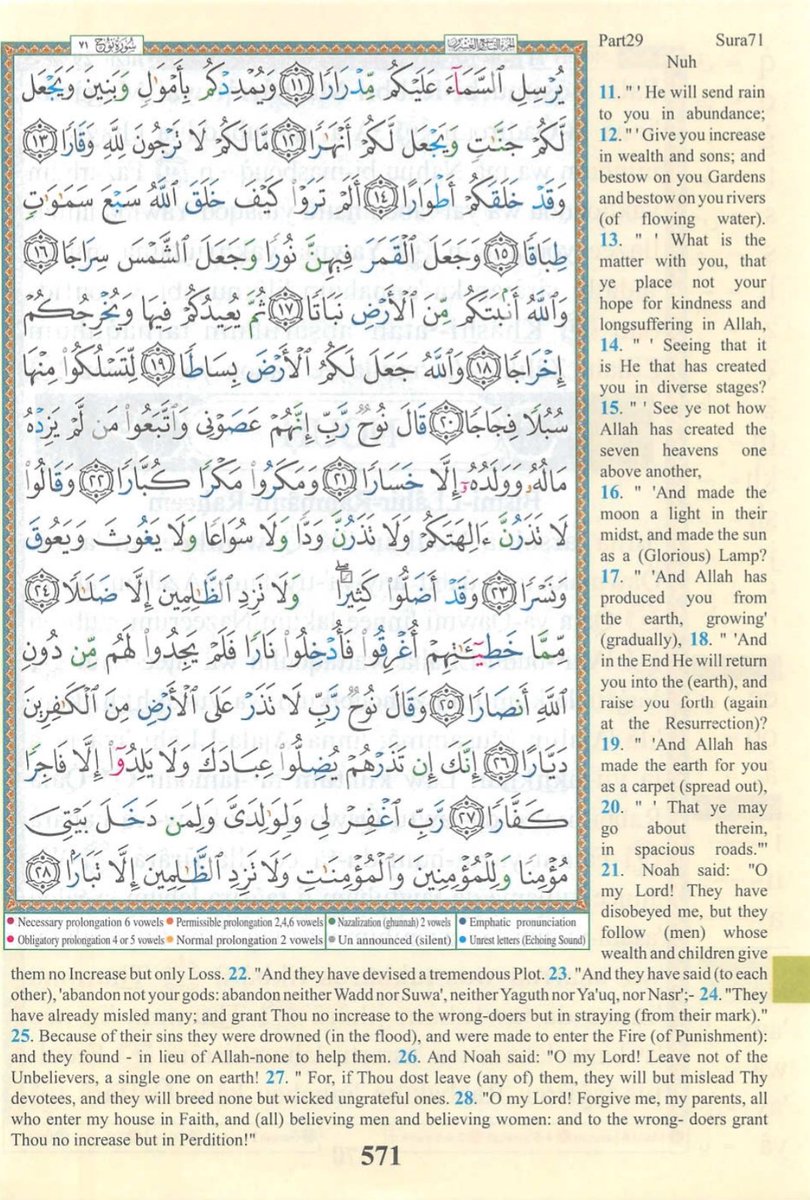 سُورَةُ نُوحٍ ٧١
الجزء التاسع والعشرون
Part29 Sura71
Nuh
يُرْسِلِ ٱلسَّمَآءَ عَلَيْكُم مِّدْرَارًا ١١ وَيُمْدِدْكُم بِأَمْوَٰلٍ وَبَنِينَ وَيَجْعَل
لَّكُمْ جَنَّٰتٍ وَيَجْعَل لَّكُمْ أَنْهَٰرًا ١٢ مَّا لَكُمْ لَا تَرْجُونَ لِلَّهِ وَقَارًا ١٣
وَقَدْ خَلَقَكُمْ أَطْوَارًا ١٤ أَلَمْ تَرَوْا۟ كَيْفَ خَلَقَ ٱللَّهُ سَبْعَ سَمَٰوَٰتٍ
طِبَاقًا ١٥ وَجَعَلَ ٱلْقَمَرَ فِيهِنَّ نُورًا وَجَعَلَ ٱلشَّمْسَ سِرَاجًا ١٦
وَٱللَّهُ أَنۢبَتَكُم مِّنَ ٱلْأَرْضِ نَبَاتًا ١٧ ثُمَّ يُعِيدُكُمْ فِيهَا وَيُخْرِجُكُمْ
إِخْرَاجًا ١٨ وَٱللَّهُ جَعَلَ لَكُمُ ٱلْأَرْضَ بِسَاطًا ١٩ لِّتَسْلُكُوا۟ مِنْهَا
سُبُلًا فِجَاجًا ٢٠ قَالَ نُوحٌ رَّبِّ إِنَّهُمْ عَصَوْنِى وَٱتَّبَعُوا۟ مَن لَّمْ يَزِدْهُ
مَالُهُۥ وَوَلَدُهُۥٓ إِلَّا خَسَارًا ٢١ وَمَكَرُوا۟ مَكْرًا كُبَّارًا ٢٢ وَقَالُوا۟
لَا تَذَرُنَّ ءَالِهَتَكُمْ وَلَا تَذَرُنَّ وَدًّا وَلَا سُوَاعًا وَلَا يَغُوثَ وَيَعُوقَ
وَنَسْرًا ٢٣ وَقَدْ أَضَلُّوا۟ كَثِيرًا ۖ وَلَا تَزِدِ ٱلظَّٰلِمِينَ إِلَّا ضَلَٰلًا ٢٤
مِّمَّا خَطِيٓـَٰٔتِهِمْ أُغْرِقُوا۟ فَأُدْخِلُوا۟ نَارًا فَلَمْ يَجِدُوا۟ لَهُم مِّن دُونِ
ٱللَّهِ أَنصَارًا ٢٥ وَقَالَ نُوحٌ رَّبِّ لَا تَذَرْ عَلَى ٱلْأَرْضِ مِنَ ٱلْكَٰفِرِينَ
دَيَّارًا ٢٦ إِنَّكَ إِن تَذَرْهُمْ يُضِلُّوا۟ عِبَادَكَ وَلَا يَلِدُوٓا۟ إِلَّا فَاجِرًا
كَفَّارًا ٢٧ رَّبِّ ٱغْفِرْ لِى وَلِوَٰلِدَىَّ وَلِمَن دَخَلَ بَيْتِىَ
مُؤْمِنًا وَلِلْمُؤْمِنِينَ وَٱلْمُؤْمِنَٰتِ وَلَا تَزِدِ ٱلظَّٰلِمِينَ إِلَّا تَبَارًۢا ٢٨
Necessary prolongation 6 vowels Permissible prolongation 2,4,6 vowels Nazalization (ghunnah) 2 vowels Emphatic pronunciation
Obligatory prolongation 4 or 5 vowels Normal prolongation 2 vowels Un announced (silent) Unrest letters (Echoing Sound)
11. " ' He will send rain
to you in abundance;
12. " ' Give you increase
in wealth and sons; and
bestow on you Gardens
and bestow on you rivers
(of flowing water).
13. " ' What is the
matter with you, that
ye place not your
hope for kindness and
longsuffering in Allah,
14. " ' Seeing that it
is He that has created
you in diverse stages?
15. " ' See ye not how
Allah has created the
seven heavens one
above another,
16. " 'And made the
moon a light in their
midst, and made the sun
as a (Glorious) Lamp?
17. " 'And Allah has
produced you from
the earth, growing'
(gradually), 18. " 'And
in the End He will return
you into the (earth), and
raise you forth (again
at the Resurrection)?
19. " 'And Allah has
made the earth for you
as a carpet (spread out),
20. " ' That ye may
go about therein,
in spacious roads."'
21. Noah said: "O
my Lord! They have
disobeyed me, but they
follow (men) whose
wealth and children give
them no Increase but only Loss. 22. "And they have devised a tremendous Plot. 23. "And they have said (to each
other), 'abandon not your gods: abandon neither Wadd nor Suwa', neither Yaguth nor Ya'uq, nor Nasr';- 24. "They
have already misled many; and grant Thou no increase to the wrong-doers but in straying (from their mark)."
25. Because of their sins they were drowned (in the flood), and were made to enter the Fire (of Punishment):
and they found - in lieu of Allah-none to help them. 26. And Noah said: "O my Lord! Leave not of the
Unbelievers, a single one on earth! 27. " For, if Thou dost leave (any of) them, they will but mislead Thy
devotees, and they will breed none but wicked ungrateful ones. 28. "O my Lord! Forgive me, my parents, all
who enter my house in Faith, and (all) believing men and believing women: and to the wrong- doers grant
Thou no increase but in Perdition!"
571